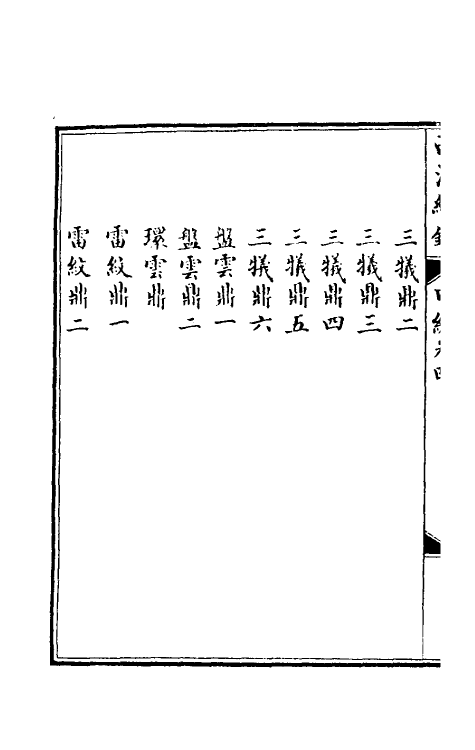 三犧鼎二
三犧鼎三
三犧鼎四
三犧鼎五
三犧鼎六
盤雲鼎一
盤雲鼎二
環雲鼎
雷紋鼎一
雷紋鼎二